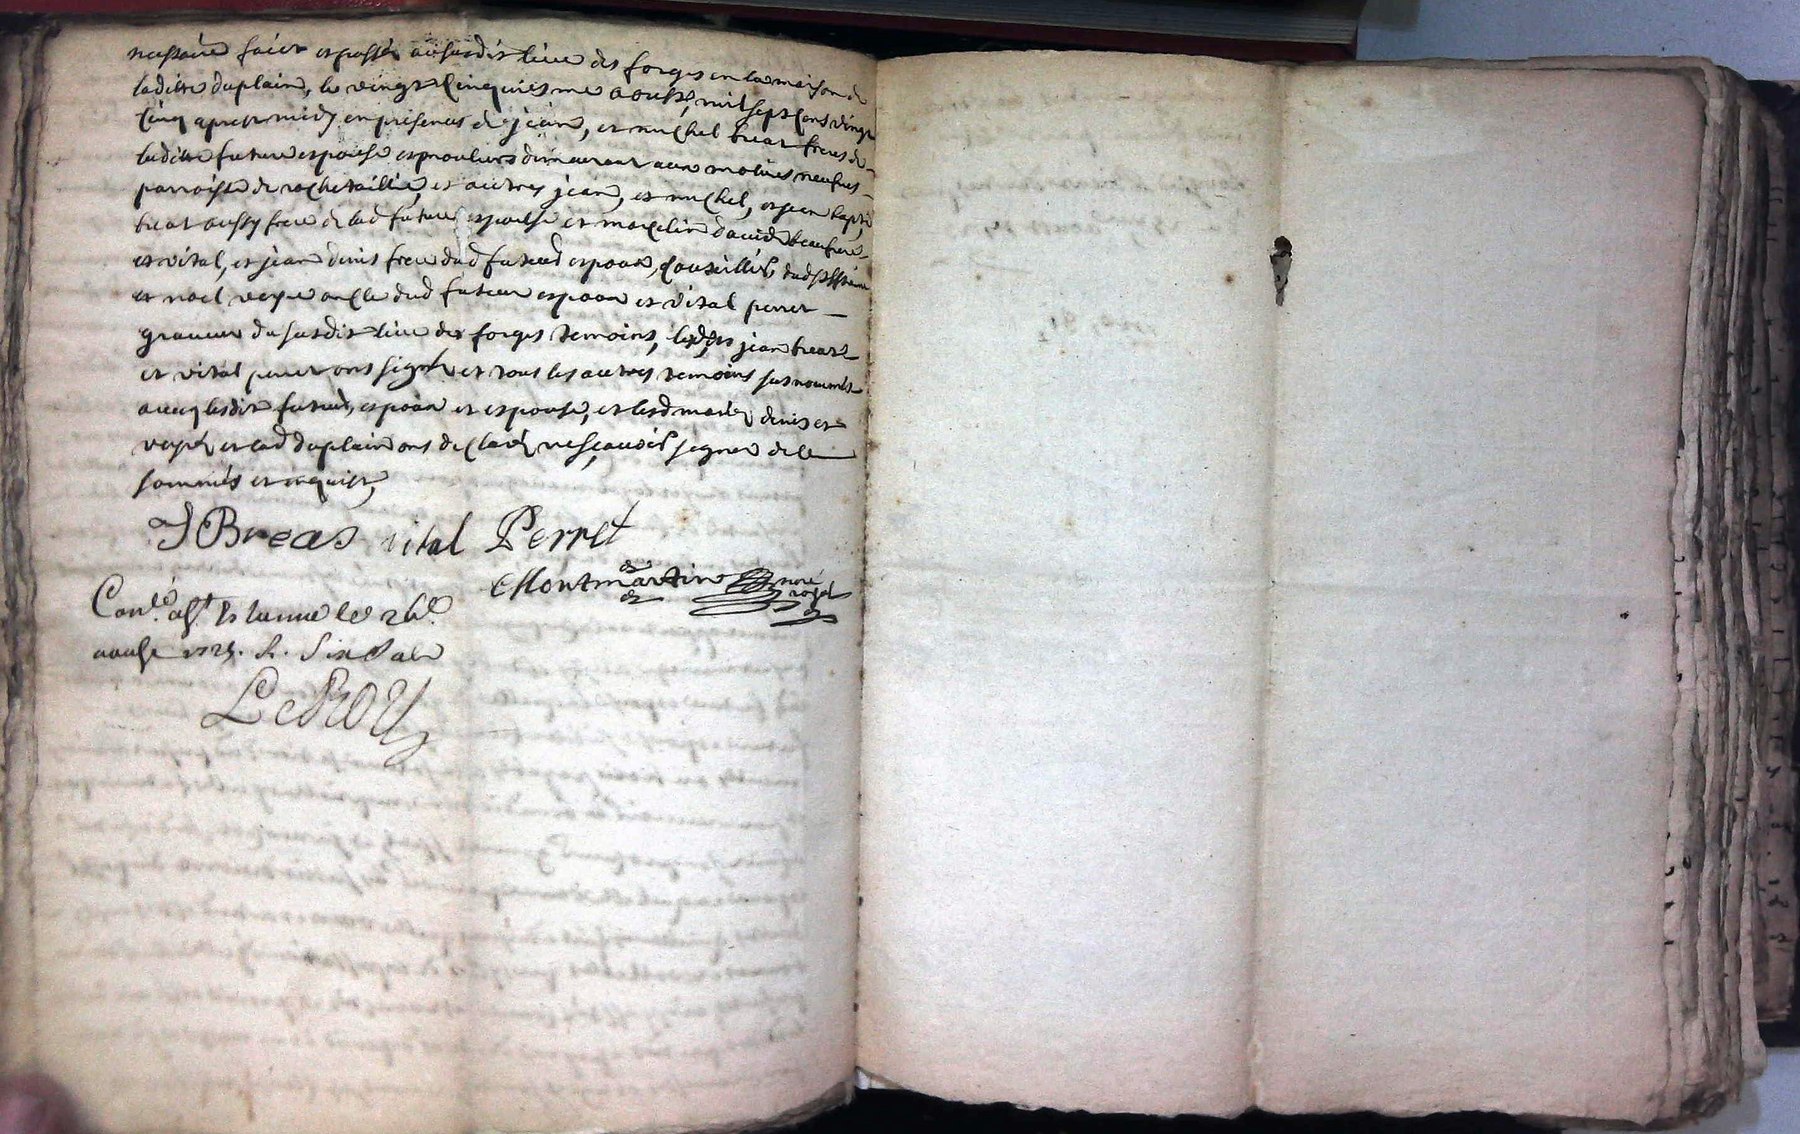 necessaire faict et passé au susdit lieu des forges en la maison de
laditte duplain, le vingt cinquiesme aoust, mil sept cens vingt
cinq apres midy en presences de jean, et michel breat freres de
laditte future espouse demeurant aux molins neufves
parroisse de rochetaillié, et autres jean, et michel, et jean baptे
breat aussy frere de lad future espouse et marcelin david beaufrere
et vital, et jean denis frere dud futur espoux,
et noel veyre oncle dud futur espoux et vital perret
graveur du susdit lieu des forges temoins, lesd jean breat
et vital perret ont signé et tous les autres temoins susnommés
avecq lesdit futurs espoux et espouse, et lesd denis et
veyre et lad duplain ont declaré ne sçavoir signer de ce
sommés et requis
J Breas vital Perret
Montmartin no.re royal
Con.lé à St Estienne le 26.e
aoust 1725. R. Six s
LeROY